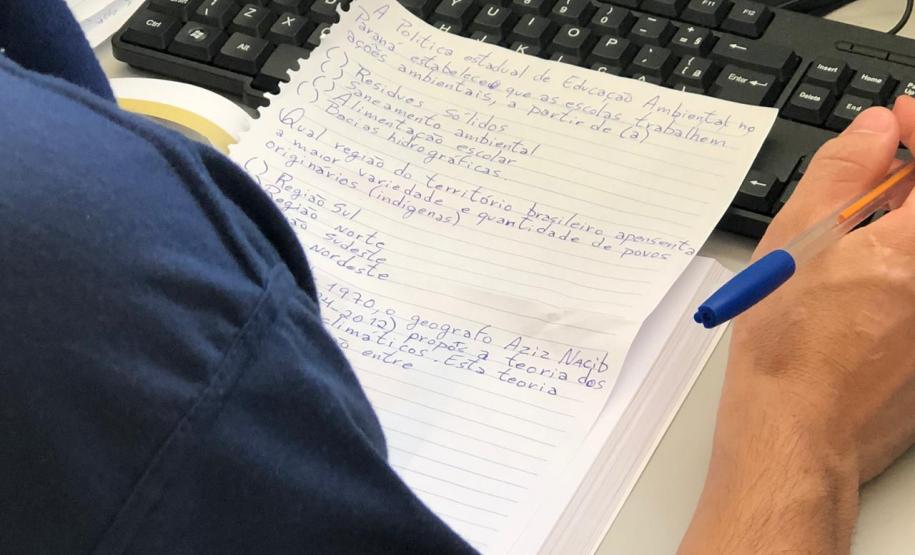 A Política estadual de Educação Ambiental no
Paraná estabelece que as escolas trabalhem
ações ambientais, a partir de (a)
( ) Resíduos Sólidos
( ) Saneamento ambiental
( ) Alimentação escolar
( ) Bacias hidrográficas.
Qual região do território brasileiro apensenta
a maior variedade e quantidade de povos
originários (indígenas)
( ) Região Sul
Região Norte
Sudeste
Nordeste
1970, o geografo Aziz Nacib
2012) propôs a teoria dos
Esta teoria
entre
Ctrl
Alt
Z
X
Y
U
I
O
P
K
L
F11
F12
Enter
Insert
Home
Delete
End